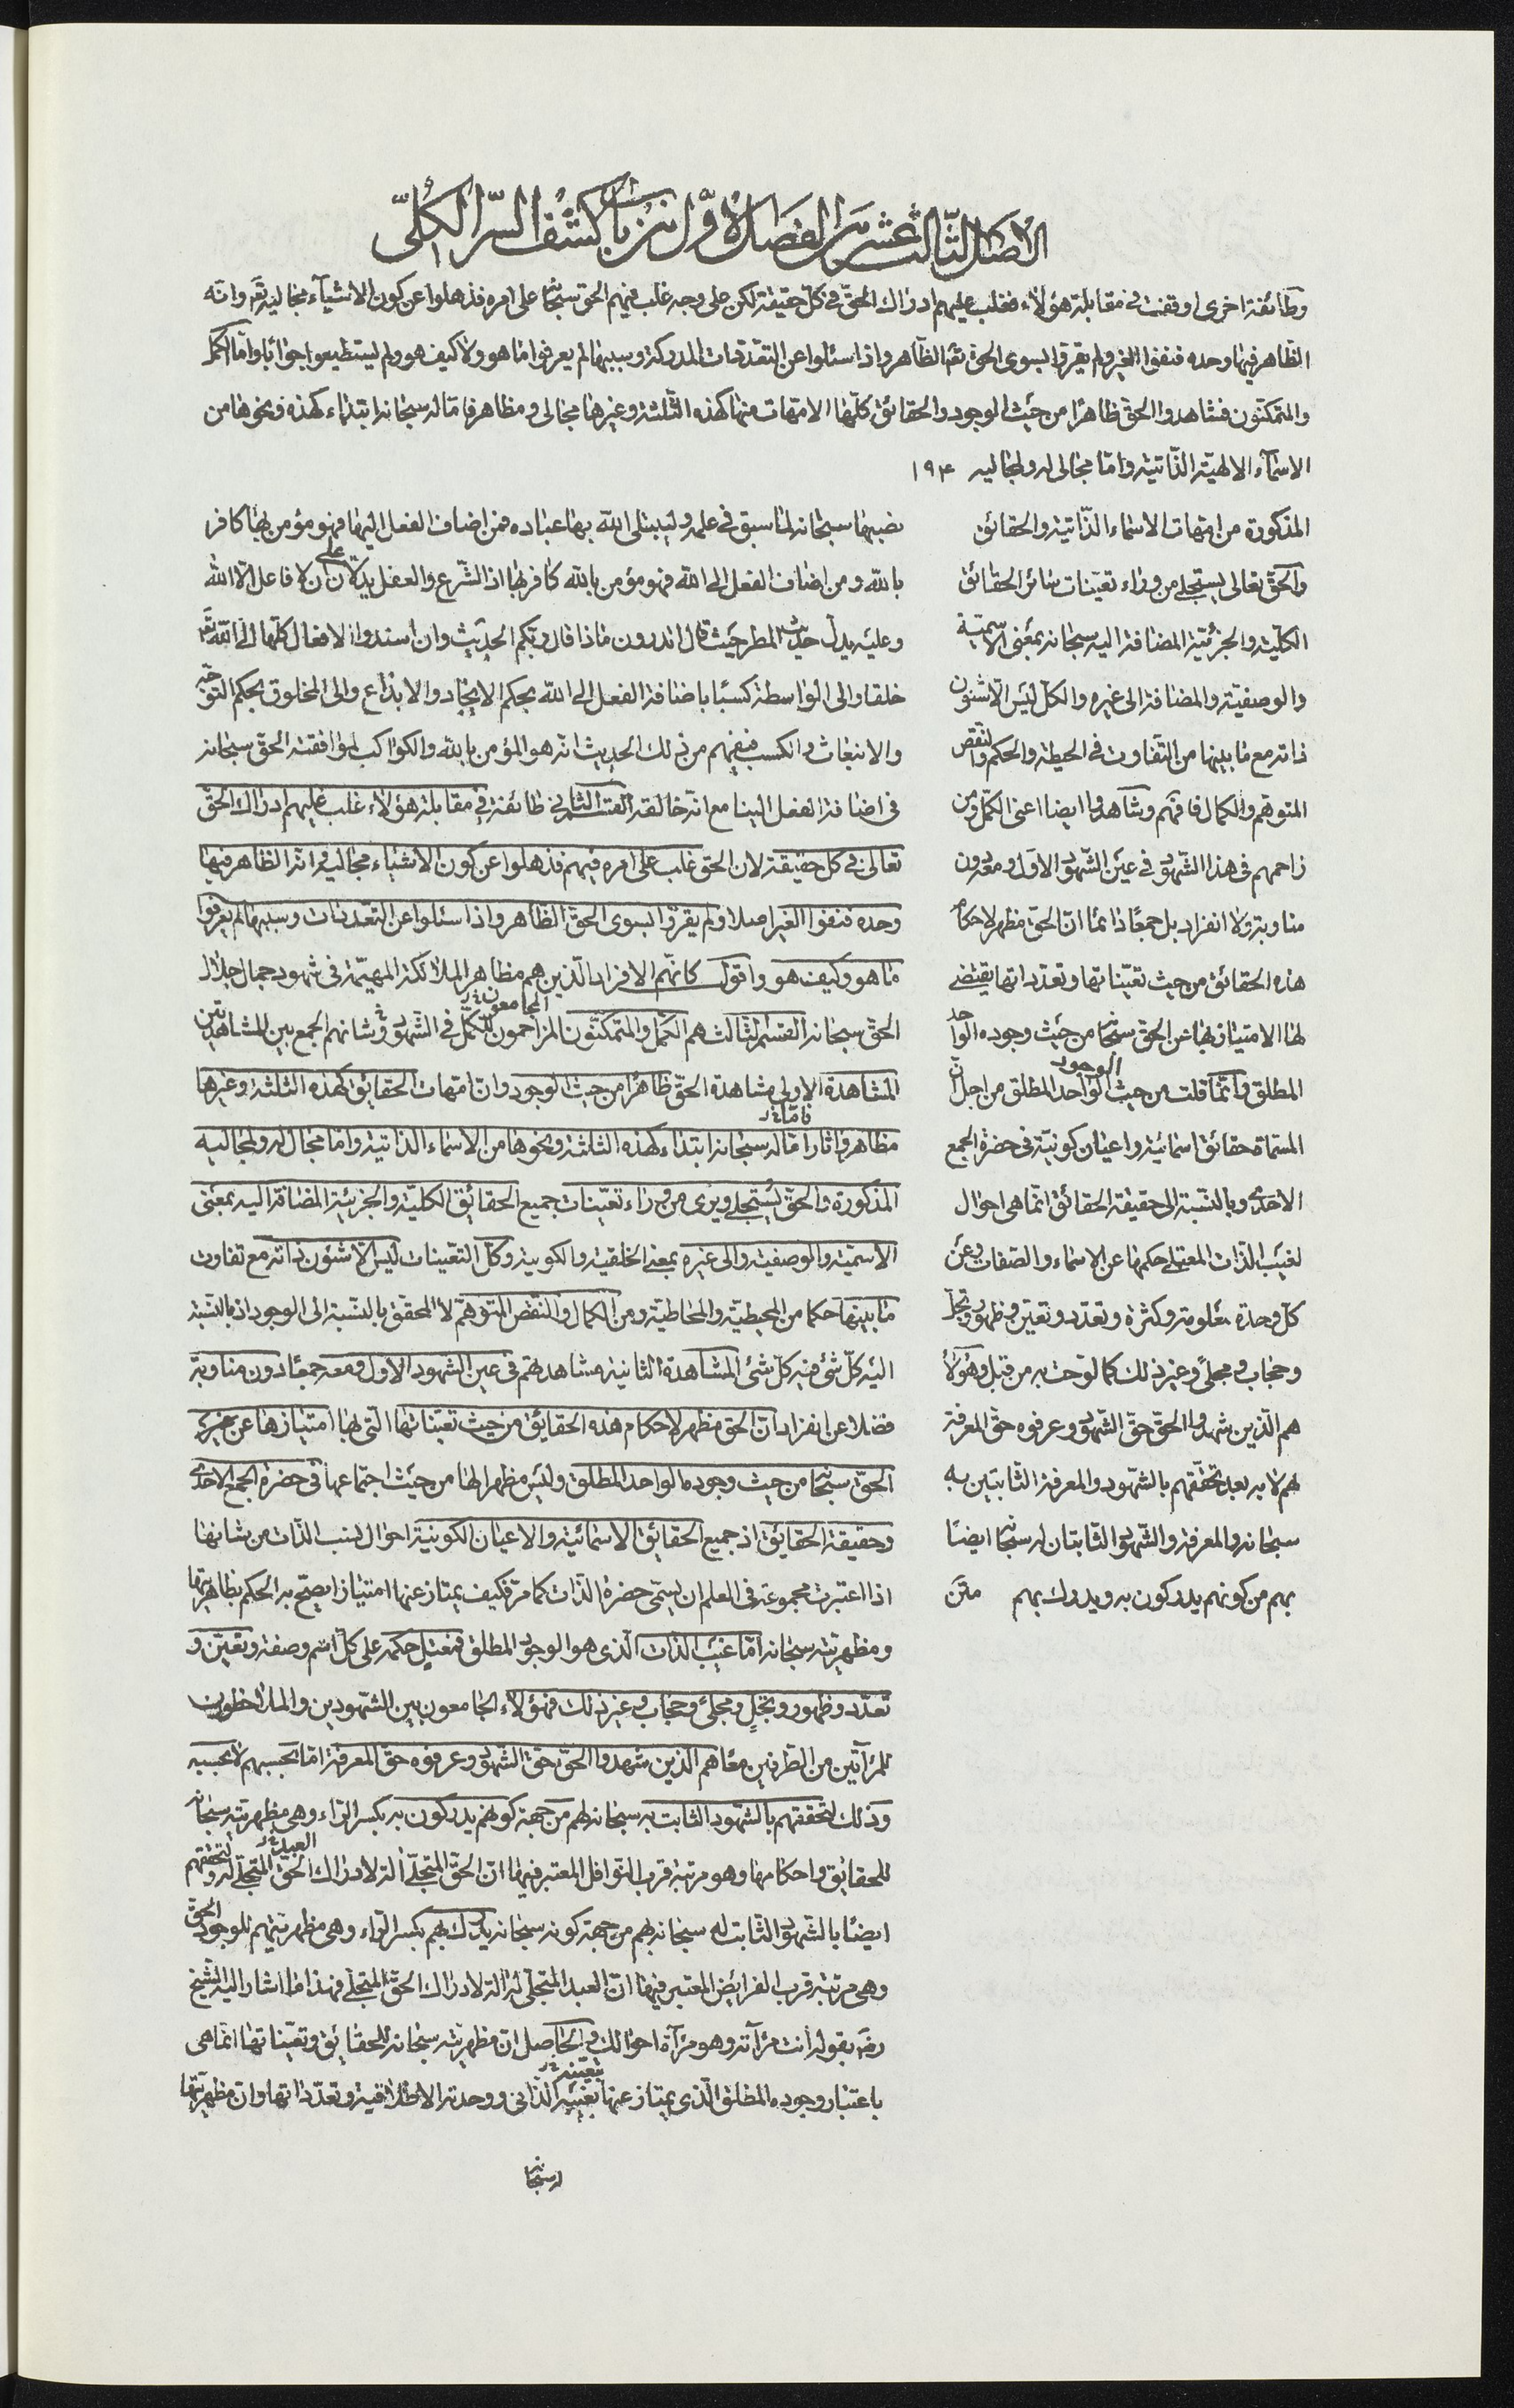 الاصل الثّالث عشر من الفصل الاوّل من باب كشف السّر الكلّى
وطائفة اخرى اوقفت فى مقابلة هؤلاء فغلب عليهم ادراك الحقّ فى كلّ حقيقة لكن على وجه غلب فيهم الحق سبحانه على امره فذهلوا عن كون الاشياء مجاليه تعم وانّه
الظّاهر فيها وحده فنفوا الغير ولم يقرّوا بسوى الحق تعم الظاهر واذا سئلوا عن التعدّدات المدركة وسببها لم يعرفوا ما هو ولا كيف هو ولم يستطيعوا جوابا وامّا الكمّل
والمتمكنون فشاهدوا الحق ظاهرا من حيث الوجود والحقائق كلّها الامّهات منها كهذه الثّلثة وغيرها مجالى ومظاهر فامّا له سبحانه ابتداء كهذه ونحوها من
الاسماء الالهيّة الذّاتية وامّا مجالى له ولمجاليه ١٩٤
المذكورة من امّهات الاسماء الذّاتية والحقائق
والحقّ تعالى يستجلى من وراء تعيّنات سائر الحقائق
الكلّية والجزئيّة المضافة اليه سبحانه بمعنى الاسميّة
والوصفيّة والمضافة الى غيره والكلّ ليس الّا شئون
ذاته مع ما بينها من التّفاوت فى الحيطة والحكم والنقص
المتوهّم والكمال فافهم وشاهدوا ايضا اعنى الكمّل ومن
زاحمهم فى هذا الشّهود فى عين الشّهود الاوّل ومعه دون
مناوبة ولا انفراد بل جمعًا دائمًا انّ الحقّ مظهر لاحكام
هذه الحقائق من حيث تعيّناتها وتعدّداتها يقتضى
لها الامتياز بها عن الحق سبحانه من حيث وجوده الواحد
المطلق وانّما قلت من حيث الوجود الواحد المطلق من اجل انّ
المسمّاة حقائق اسمائيّة واعيان كونيّة فى حضرة الجمع
الاحدى وبالنّسبة الى حقيقة الحقائق انّما هى احوال
لغيب الذّات المعتلى حكمها عن الاسماء والصّفات وعن
كلّ وحدة معلومة وكثرة وتعدّد وتعيّن وظهور وتجلّ
وحجاب ومجلىً وغير ذلك كما لوّحت به من قبل وهؤلاء
هم الّذين شهدوا الحقّ حقّ الشّهود وعرفوه حق المعرفة
لهم لا به بعد تحقّقهم بالشّهود والمعرفة الثّابتين به
سبحانه والمعرفة والشّهود الثّابتان له سبحانه ايضًا
بهم من كونهم يدركون به ويدرك بهم متن
نصبها سبحانه لما سبق فى علمه وليبتلى اللّه بها عباده فمن اضاف الفعل اليها فهو مؤمن بها كافر
باللّه ومن اضاف الفعل الى اللّه فهو مؤمن باللّه كافر بها اذ الشّرع والعقل يدلّان على ان لا فاعل الّا اللّه
وعليه يدلّ حديث المطر حيث قال اتدرون ماذا قال ربّكم الحديث وان اسندوا الافعال كلّها الى اللّه تعم
خلقا والى الواسطة كسبًا باضافة الفعل الى اللّه بحكم الايجاد والابداع والى المخلوق بحكم التوجّه
والانبعاث والكسب فيفهم من ذلك الحديث انّه هو المؤمن باللّه والكواكب لموافقته الحق سبحانه
فى اضافة الفعل الينا مع انّه خالقه القسم الثانى طائفة فى مقابلة هؤلاء غلب عليهم ادراك الحقّ
تعالى فى كل حقيقة لان الحق غلب على امره فيهم فذهلوا عن كون الاشياء مجاليه وانّه الظاهر فيها
وحده فنفوا الغير اصلا ولم يقرّوا بسوى الحقّ الظاهر واذا سئلوا عن التعدّدات وسببها لم يعرفوا
ما هو وكيف هو واقول كانّهم الافراد الّذين هم مظاهر الملائكة المهيّمة فى شهود جمال جلال
الحق سبحانه القسم الثالث هم الكمّل والمتمكنّون المزاحمون للكمّل فى الشّهود وشانهم الجمع بين المشاهدتين
المجامعون
المشاهدة الاولى مشاهدة الحقّ ظاهرًا من حيث الوجود وانّ امّهات الحقائق كهذه الثلثة وغيرها
مظاهر واثارا امّا له سبحانه ابتداء كهذه الثلثة ونحوها من الاسماء الذاتية وامّا مجال له ولمجاليه
فامّا
المذكورة والحقّ يُستجلى ويرى من وراء تعيّنات جميع الحقائق الكليّة والجزئية المضافة اليه بمعنى
الاسميّة والوصفية والى غيره بمعنى الخلقية والكونية وكلّ التعيّنات ليس الّا شئون ذاته مع تفاوت
ما بينها حكما من المحيطيّة والمحاطيّة ومن الكمال والنّقص المتوهّم لا المحقّق بالنّسبة الى الوجود اذ بالنّسبة
اليه كلّ شئ فيه كلّ شئ المشاهدة الثانية مشاهدتهم فى عين الشهود الاول ومعه جمعًا دون مناوبة
فضلا عن انفراد انّ الحق مظهر لاحكام هذه الحقائق من حيث تعيّناتها الّتى بها امتيازها عن
الحقّ سبحانه من حيث وجوده الواحد المطلق وليس مظهرا لها من حيث اجتماعها فى حضرة الجمع الاحدى
وحقيقة الحقائق اذ جميع الحقائق الاسمائيّة والاعيان الكونيّة احوال لنسب الذّات من شانها
اذا اعتبرت مجموعة فى العلم ان يسمّى حضرة الذّات كما مرّ فكيف يمتاز عنها امتيازا يصحّ به الحكم بظاهريّتها
ومظهريّته سبحانه امّا غيب الذات الّذى هو الوجود المطلق فمعتلٍ حكمه على كلّ اسم وصفة وتعيّن و
تعدّد وظهور وتجلّ ومجلىً وحجاب وغير ذلك فهؤلاء الجامعون بين الشّهودين والملاحظون
للمرآتين من الطّرفين معًا هم الّذين شهدوا الحقّ حقّ الشّهود وعرفوه حقّ المعرفة امّا بحسبهم لا بحسبه
وذلك لتحقّقهم بالشّهود الثابت به سبحانه لهم من جهة كونهم يدركون به بكسر الرّاء وهى مظهريّته سبحانه
للحقايق واحكامها وهو مرتبة قرب النّوافل المعتبر فيها انّ الحقّ المتجلّى آلة لادراك العبد المتجلّى له ولتحقّقهم
الحق
ايضًا بالشّهود الثّابت له سبحانه بهم من جهة كونه سبحانه يدرك بهم بكسر الرّاء وهى مظهريّتهم للوجود الحقّ
وهى مرتبة قرب الفرايض المعتبر فيها انّ العبد المتجلّى له آلة لادراك الحقّ المتجلّى فهذا ما اشار اليه الشّيخ
رضه بقوله أنت مرآته وهو مرآة احوالك والحاصل انّ مظهريّته سبحانه للحقائق وتعيّناتها انّما هى
باعتبار وجوده المطلق الّذى يمتاز عنها بغيبه الذّاتى ووحدته الاطلاقية وتعدّداتها وانّ مظهريّتها
تعيّنه
له سبحانه